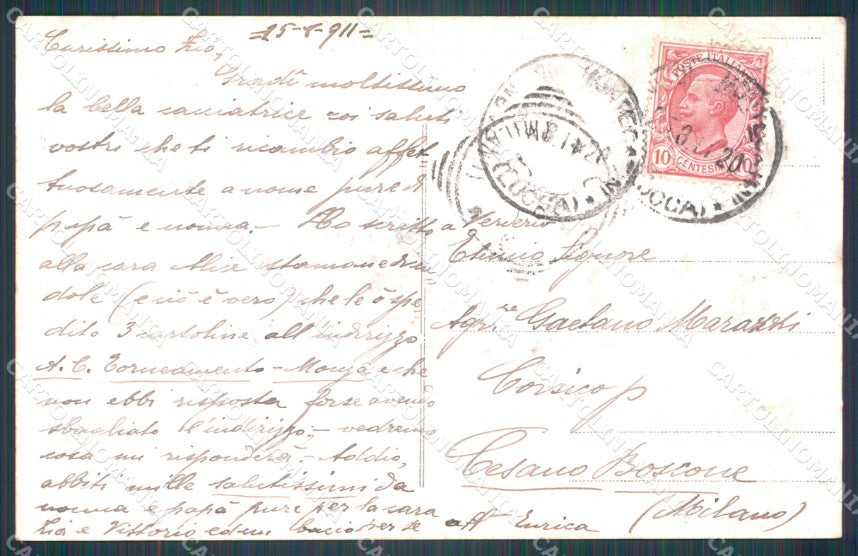 25-1-911=
Carissimo Zio,
Gradì moltissimo
la bella cacciatrice coi saluti
vostri che ti ricambio affet
tuosamente a nome pure di
papà e nonna - Ho scritto
alla cara Alice stamane dicen
dole (e ciò è vero) che le ò spe
dito 3 cartoline all'indirizzo
A. C. Torneamento - Monza e che
non ebbi risposta forse avevo
sbagliato l'indirizzo, - vedremo
cosa mi risponderà - Addio,
abbiti mille salutissimi da
nonna e papà pure per la cara
Zia e Vittorio ed un bacio per te
aff Enrica
a
Signore
Agr. re Gaetano Marazzi
Corsico p
Cesano Boscone
(Milano)
POSTE ITALIANE
10 CENTESIMI 10
(LUCCA)
(LUCCA)
CARTOLINOMANIA